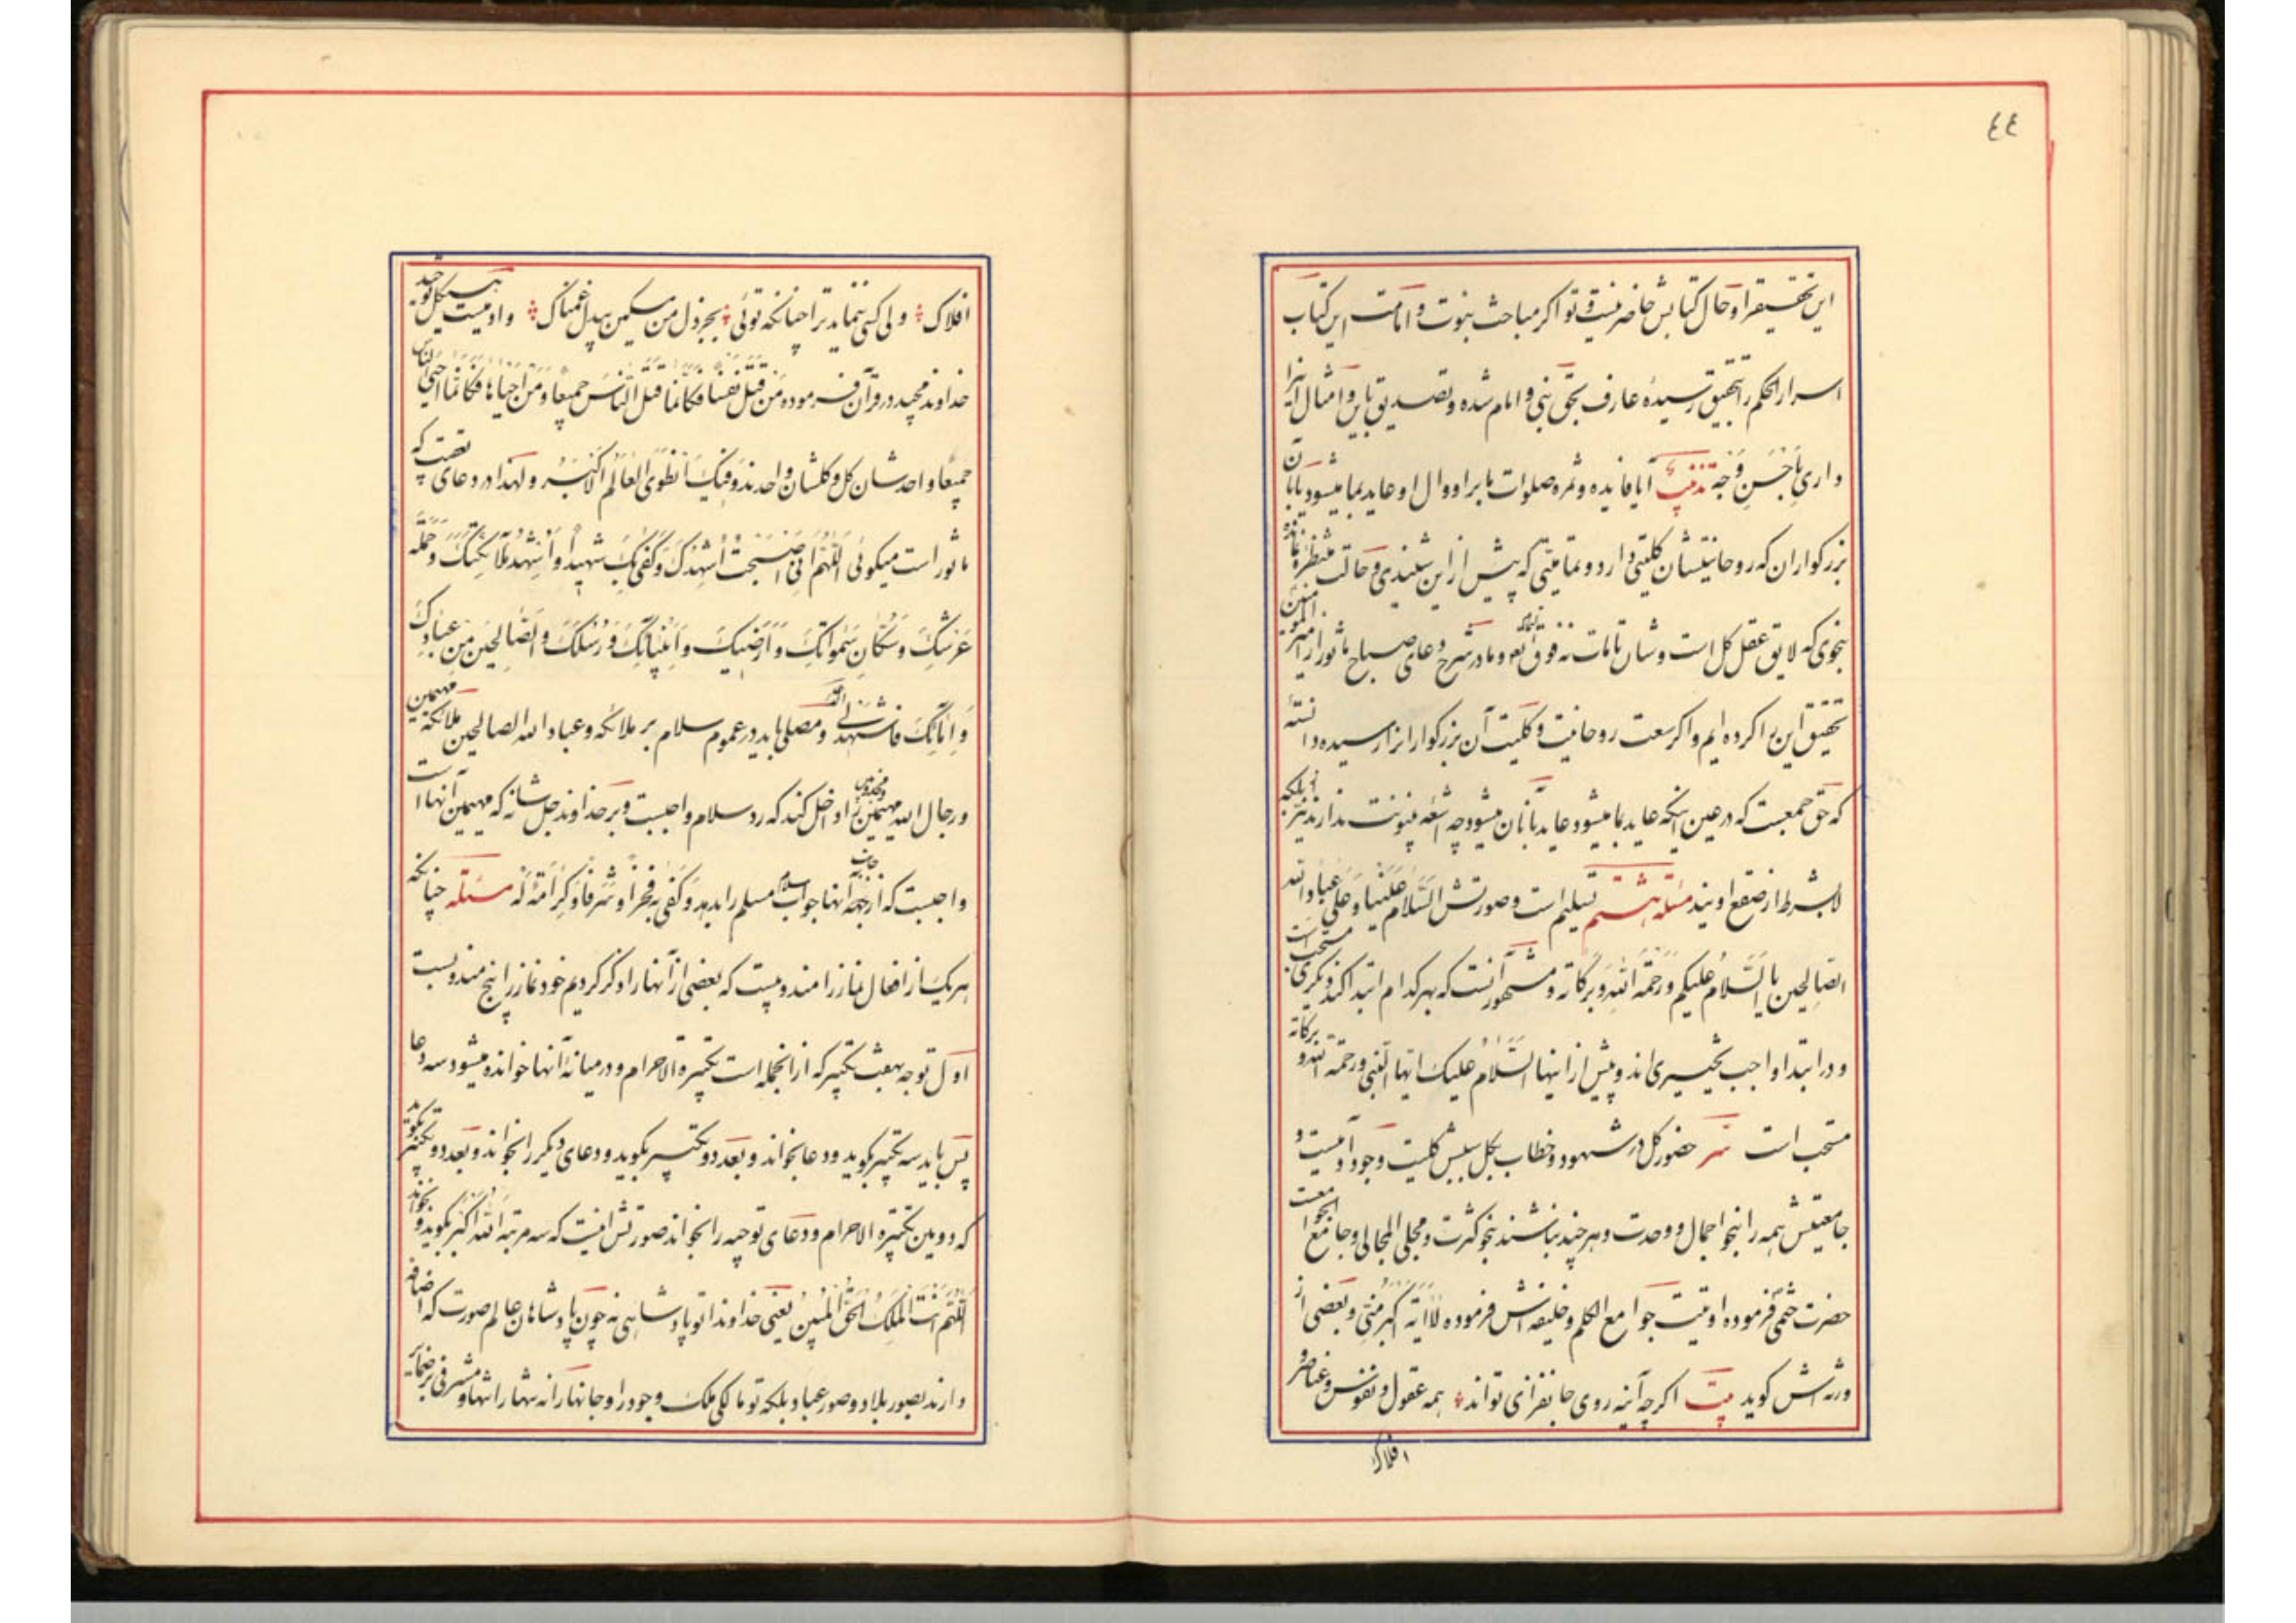 ٤٤
این تحقیقرا و حال کتابش حاضر نیست و تو اگر مباحث نبوت و امامت این کتاب
اسرار الحکم را بتحقیق رسیدهٔ عارف بحق نبی و امام شده و تصدیق باین و امثال اینرا
داری بِاَحْسَنِ وَجه تذنیب آیا فایده و ثمره صلوات ما بر او و آل او عاید بما میشود یا بآن
بزرگواران که روحانیتشان کلیتی دارد و تمامیتی که پیش از این شنیدی و حالت منتظره نمانده
بنحوی که لایق عقل کل است و شان تامات نه فوق التمام و ما در شرح دعای صباح ماثور از امیر المؤمنین
تحقیق این را کرده ایم و اگر سعت روحانیت و کلیت آن بزرگوار انرا رسیده دانستهٔ
که حق جمعیست که در عین اینکه عاید بما میشود عاید بآنان میشود چه اشعه بینونت ندارند از نیّر بلکه
لابشرط از صقع اویند مسئله هشتم تسلیم است و صورتش السَّلامُ عَلَیْنا وَعَلی عِبادِ الله
الصّالِحین یا السَّلامُ علیکم وَرَحْمَةُ اللهِ وَبَرَکاتُهُ و مشهور آنست که بهر کدام ابتدا کند دیگری مستحب است
و در ابتدا واجب تخییری اند و پیش از اینها السَّلامُ علیک ایها النّبی و رحمة الله و برکاته
مستحب است سرّ حضور کل در شهود و خطاب بکل سببش کلیت وجود آدمیست و
جامعیتش همه را بنحو اجمال و وحدت و هر چند نباشند بنحو کثرت و مجلی المجالی و جامع الجوامعست
حضرت ختمی فرموده اوتیت جوامع الکلم و خلیفه اش فرموده لا آیة اکبر منّی و بعضی از
ورثه اش گوید بیت اگر چه آینه روی جانفزای تواند همه عقول و نفوس و عناصر و
افلاک
افلاک ولی کسی ننماید ترا چنانکه توئی بجز دل من مسکین بیدل غمناک و آدمیست هیکل توحید
خداوند مجید در قرآن فرموده مَنْ قَتَلَ نَفْسًا فَکَاَنَّما قَتَلَ النّاسَ جَمیعًا وَمَنْ اَحْیاها فَکَاَنَّما اَحْیَی النّاس
جمیعًا و احدشان کل و کلشان واحدند وَفیکَ انطَوَی العالَمُ الاَکْبَرُ و لهذا در دعای تعقیب که
ماثور است میگوئی اَللّهُمَّ اِنّی اَصْبَحْتُ اُشْهِدُکَ وَکَفی بِکَ شَهیدًا وَاُشْهِدُ مَلائِکَتَکَ وَحَمَلَةَ
عَرْشِکَ وَسُکّانِ سَمواتِکَ وَاَرْضِیکَ وَاَنْبِیائِکَ وَرُسُلِکَ وَالصّالِحینَ مِنْ عِبادِکَ
وَاِمائِکَ فَاشْهَدْ لی و مصلی باید در عموم سلام بر ملائکه و عباد الله الصالحین ملائکه مهیمین
و رجال الله مهیمین را داخل کند که رد سلام واجبست و بر خداوند جل شانه که مهیمین آنها است
واجبست که از جانب آنها جواب سلام مسلم را بدهد وَکَفی بِهِ فَخْرًا وَشَرَفًا وَکَرامَةً لَهُ مسئله چنانکه
هر یک از افعال نماز را مندوبیست که بعضی از آنها را ذکر کردیم خود نماز را پنج مندوبست
اول توجه بهفت تکبیر که از آنجمله است تکبیرة الاحرام و در میانهٔ آنها خوانده میشود سه دعا
پس باید سه تکبیر بگوید و دعا بخواند و بعد دو تکبیر بگوید و دعای دیگر را بخواند و بعد دو تکبیر بگوید
که دویمین تکبیرة الاحرام و دعای توجیه را بخواند صورتش اینست که سه مرتبه الله اکبر بگوید و بخواند
اَللّهُمَّ اَنْتَ المَلِکُ الحَقُّ المُبینُ یعنی خداوندا تو پادشاهی نه چون پادشاهان عالم صورت که اضافه
دارند بصور بلاد و صور عباد بلکه تو مالکی ملک وجود را و جانها را نه شها را شها و مشرفی بر ضمایر